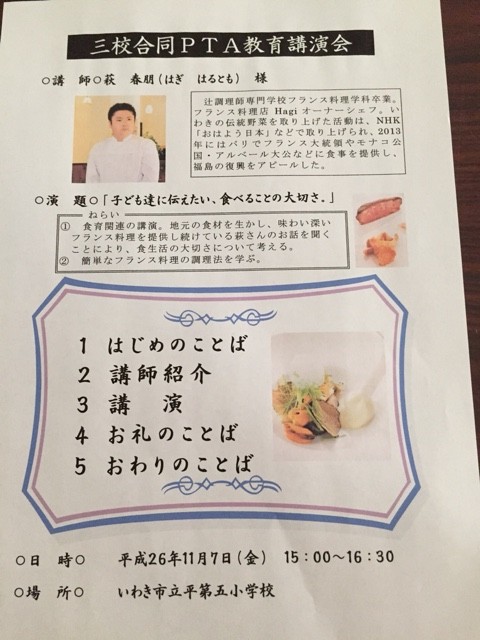 三校合同PTA教育講演会
○講　師○萩　春朋（はぎ　はるとも）　様
辻調理師専門学校フランス料理学科卒業。
フランス料理店 Hagi オーナーシェフ。い
わきの伝統野菜を取り上げた活動は、NHK
「おはよう日本」などで取り上げられ、2013
年にはパリでフランス大統領やモナコ公
国・アルベール大公などに食事を提供し、
福島の復興をアピールした。
○演　題○「子ども達に伝えたい、食べることの大切さ。」
ねらい
①　食育関連の講演。地元の食材を生かし、味わい深い
フランス料理を提供し続けている萩さんのお話を聞く
ことにより、食生活の大切さについて考える。
②　簡単なフランス料理の調理法を学ぶ。
1　はじめのことば
2　講師紹介
3　講　演
4　お礼のことば
5　おわりのことば
○日　時○　平成26年11月7日（金）　15：00～16：30
○場　所○　いわき市立平第五小学校